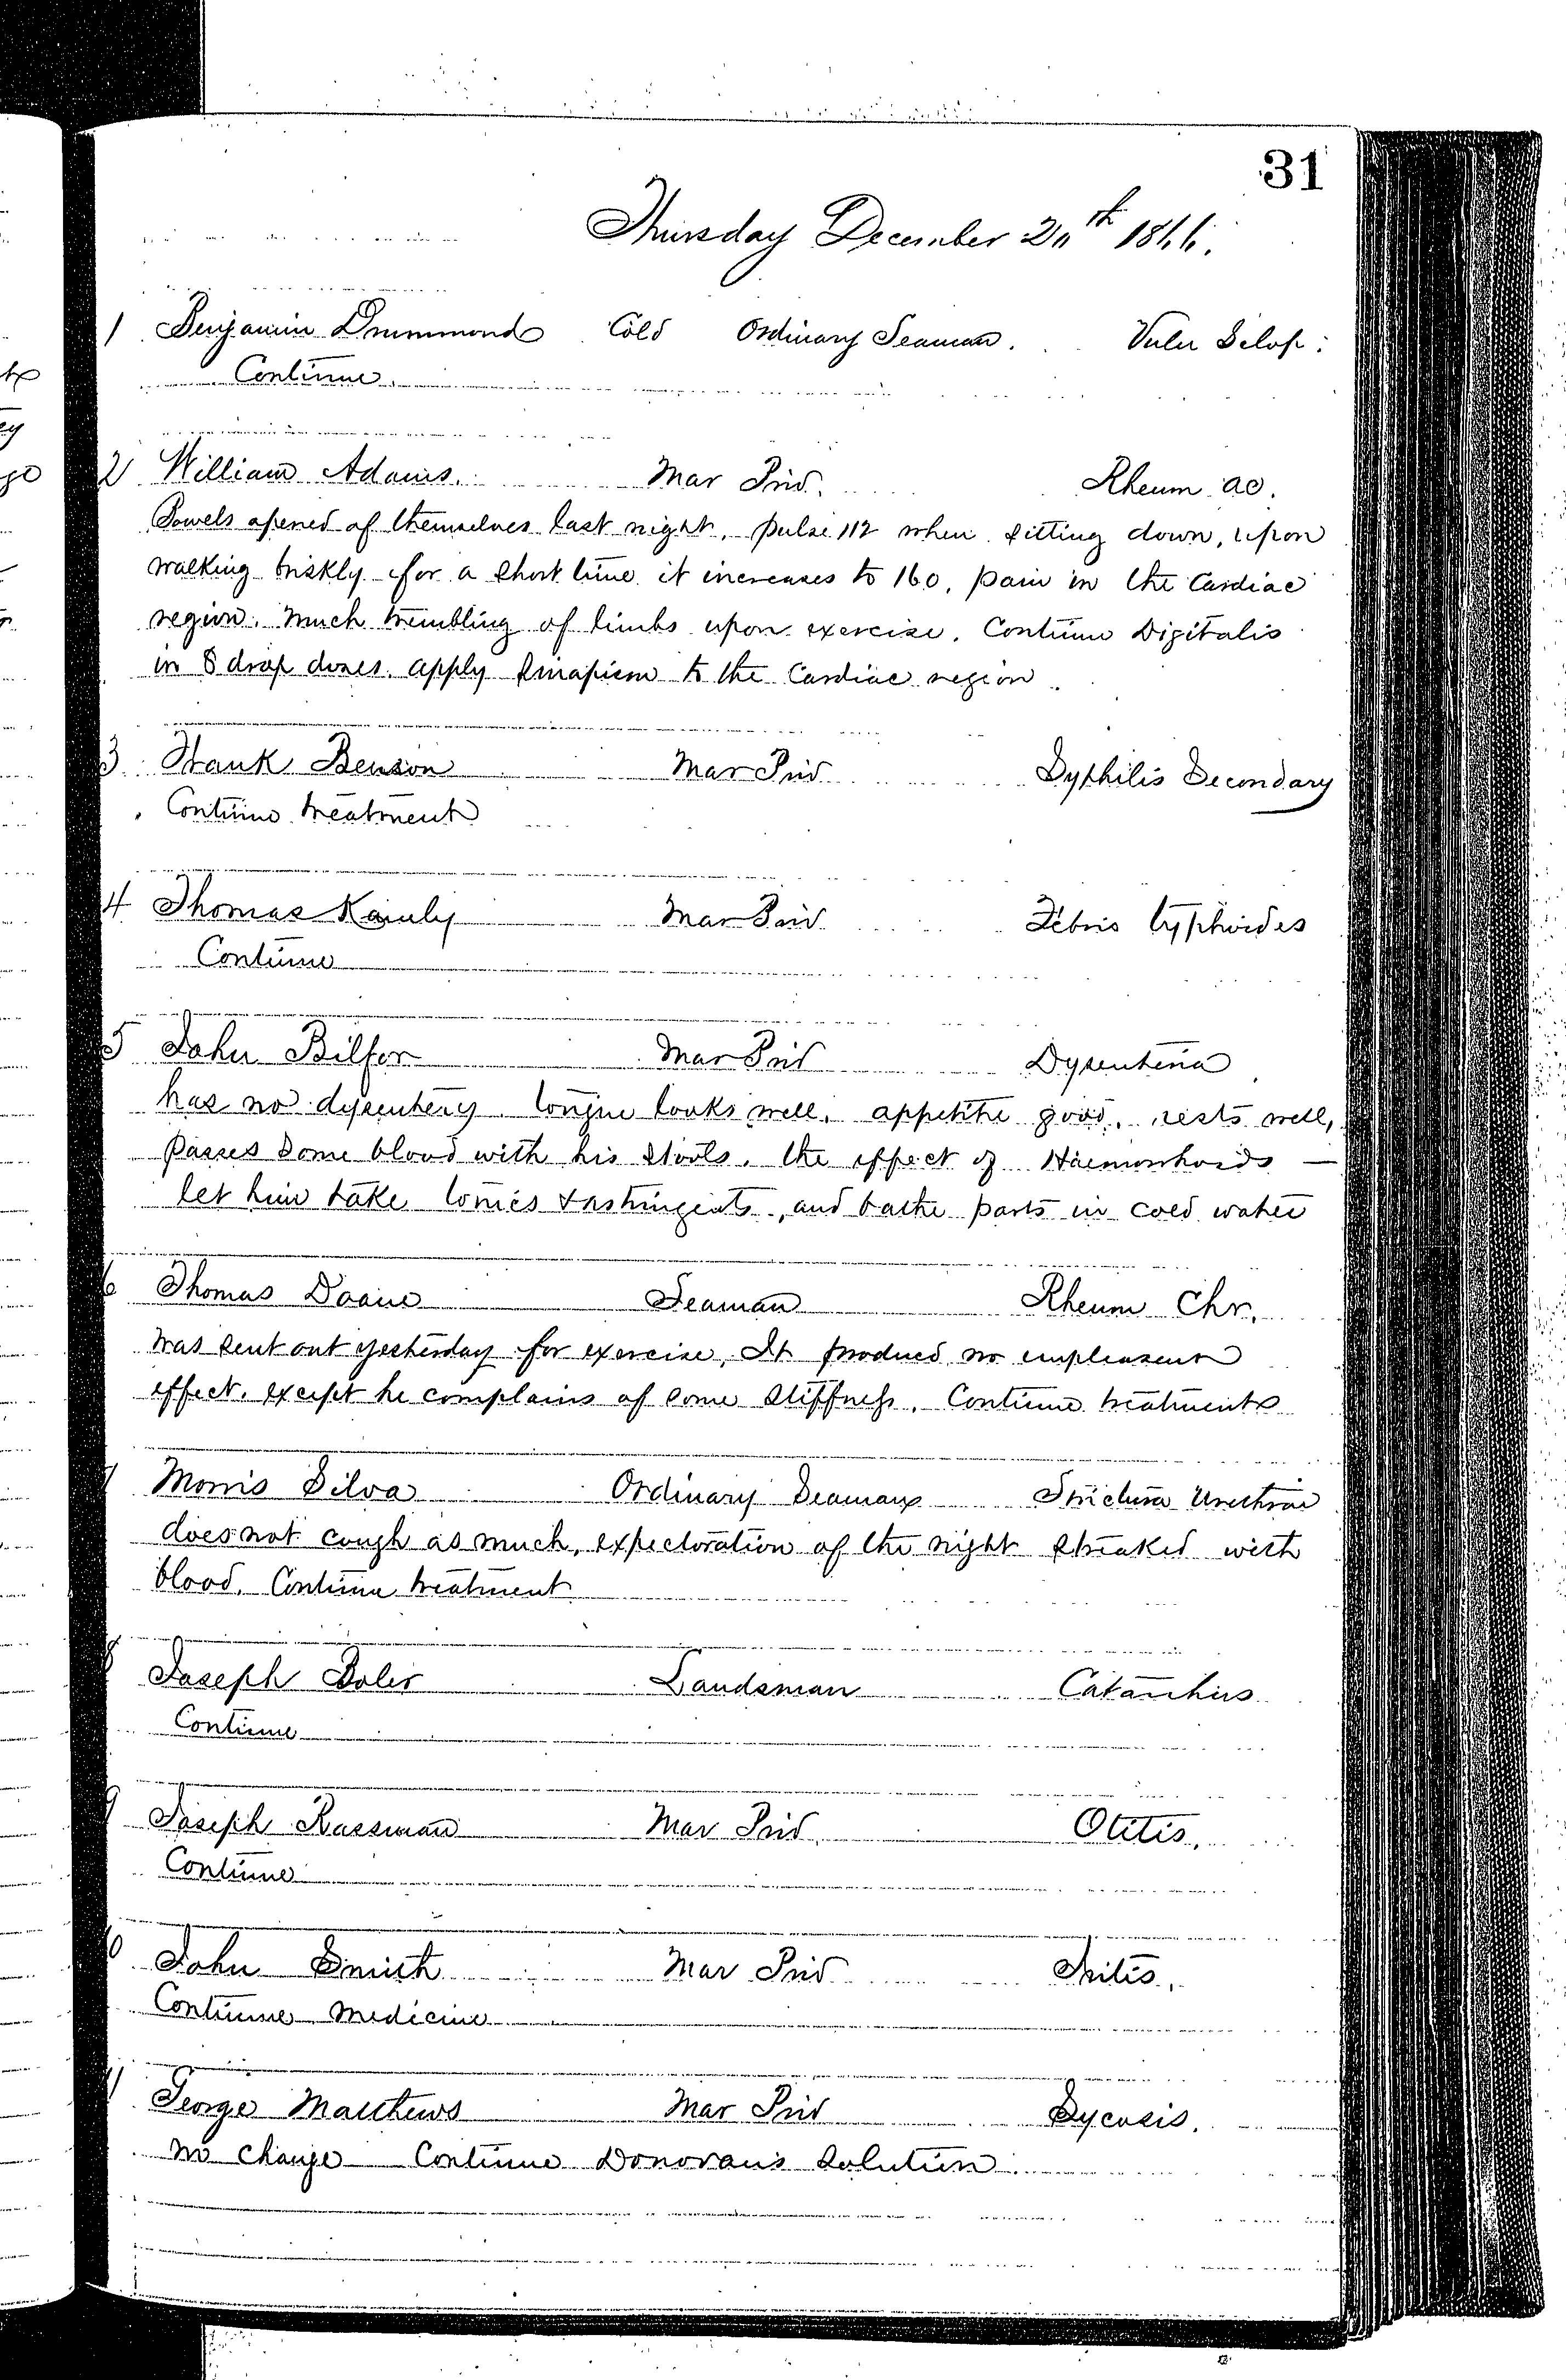 31
Thursday December 20th 1866.
1 Benjamin Drummond Col'd Ordinary Seaman. Vuln Sclop:
Continue.
2 William Adams. Mar Priv. Rheum ac.
Bowels opened of themselves last night, pulse 112 when sitting down, upon
walking briskly for a short time it increases to 160, pain in the Cardiac
region. Much trembling of limbs upon exercise. Continue Digitalis
in 8 drop doses. apply sinapism to the Cardiac region.
3 Frank Benson Mar Priv Syphilis Secondary
Continue treatment
4 Thomas Mar Priv Febris typhoides
Continue
5 John Bilfor Mar Priv Dysenteria
has no dysentery. tongue looks well. appetite good. rests well,
passes some blood with his stools. the effect of Haemorrhoids —
let him take tonics & astringents, and bathe parts in cold water
6 Thomas Doane Seaman Rheum Chr.
was sent out yesterday for exercise, It produced no unpleasent
effect. except he complains of some stiffness. Continue treatment
7 Morris Silva Ordinary Seaman Strictura Urethrae
does not cough as much, expectoration of the night streaked with
blood. Continue treatment
8 Joseph Boler Landsman Catarrhus
Continue
9 Joseph Rassman Mar Priv. Otitis.
Continue
10 John Smith Mar Priv Iritis.
Continue medicine
11 George Matthews Mar Priv Sycosis.
no change Continue Donovan's solution.